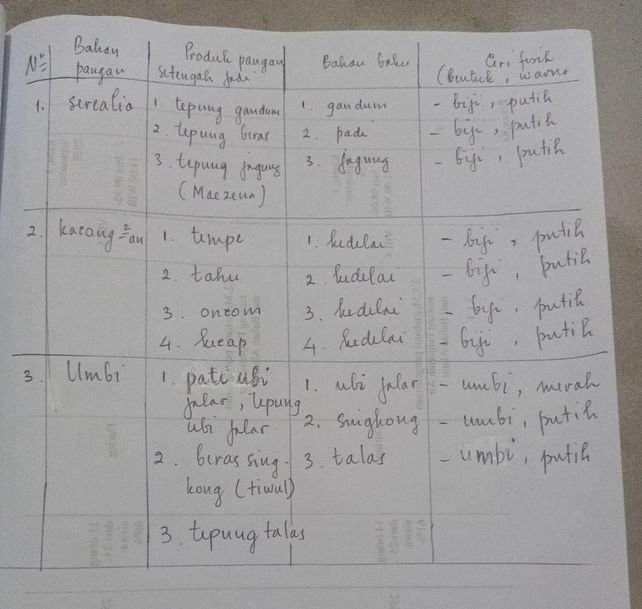 No Bahan pangan Produk pangan setengah jadi Bahan baku Ciri fisik (Bentuk, warna
1. serealia 1. tepung gandum 1. gandum - biji, putih
2. tepung beras 2. padi - biji, putih
3. tepung jagung (Maezena) 3. jagung - biji, putih
2. kacang²-an 1. tempe 1. kedelai - biji, putih
2. tahu 2. kedelai - biji, putih
3. oncom 3. kedelai - biji, putih
4. kecap 4. kedelai - biji, putih
3. Umbi 1. pati ubi jalar, tepung ubi jalar 1. ubi jalar - umbi, merah
2. beras singkong (tiwul) 2. singkong - umbi, putih
3. tepung talas 3. talas - umbi, putih